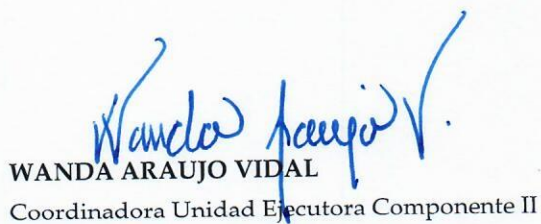 Wanda Araujo V.
WANDA ARAUJO VIDAL
Coordinadora Unidad Ejecutora Componente II